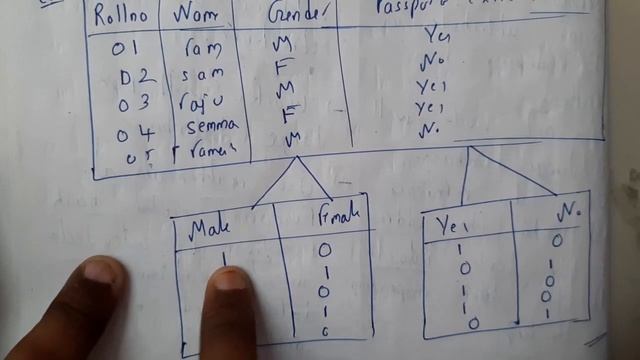 Rollno Nam Gender
01 ram M Yes
02 sam F No
03 raju M Yes
04 semma F Yes
05 M No
Male Female Yes No
1 0 1 0
1 0 1
0 1 0
1 1 0
0 0 1